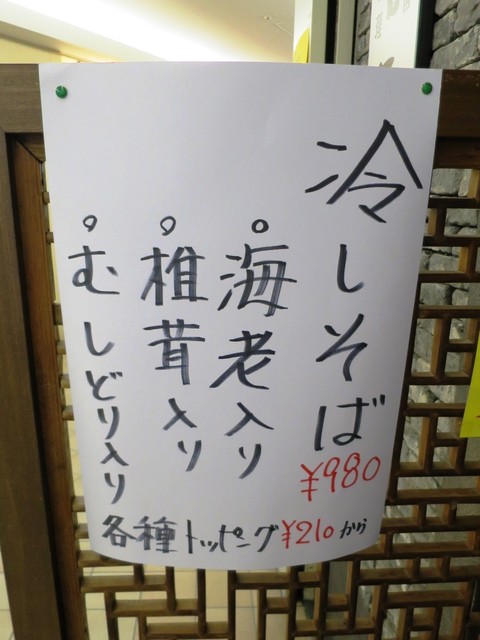 冷しそば
¥980
。海老入り
。椎茸入り
。むしどり入り
各種トッピング¥210から